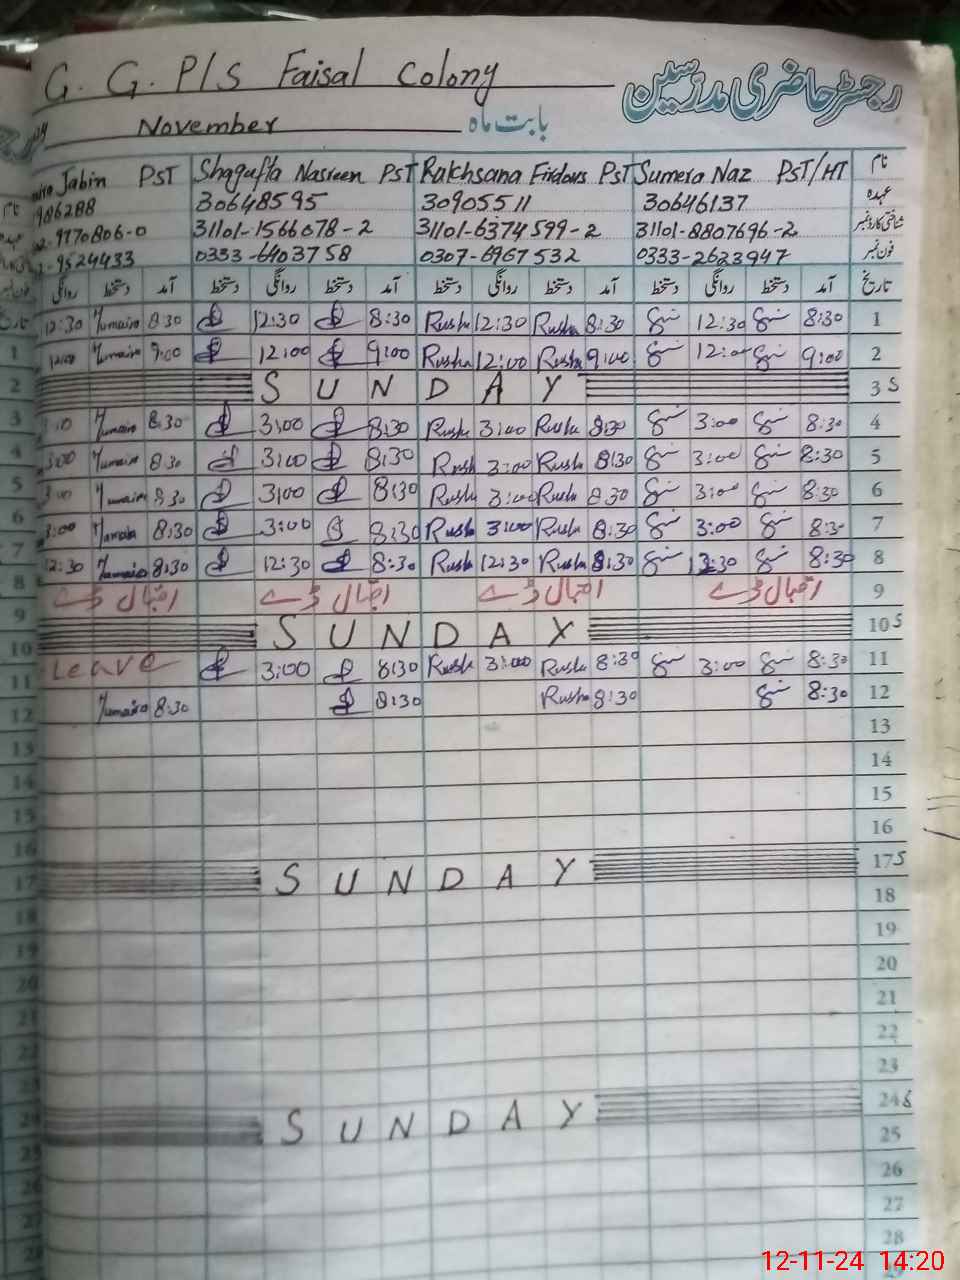 G. G. P/S Faisal Colony رجسٹر حاضری مدرسین
November بابت ماہ
Jabin PST Shagufta Nasreen PST Rakhsana Firdous PST Sumera Naz PST/HT نام
986288 30648595 30905511 30646137 عہدہ
9170806-0 31101-1566078-2 31101-6374599-2 31101-8807696-2 شناختی کارڈ نمبر
9524433 0333-6403758 0307-6967532 0333-2623947 فون نمبر
روانگی دستخط آمد دستخط روانگی دستخط آمد دستخط روانگی دستخط آمد دستخط روانگی دستخط آمد تاریخ
12:30 Humaira 8:30 12:30 8:30 Rusha 12:30 Rusha 8:30 12:30 8:30 1
12:00 Humaira 9:00 12:00 9:00 Rusha 12:00 Rusha 9:00 12:00 9:00 2
SUNDAY 3 S
Humaira 8:30 3:00 8:30 Rusha 3:00 Rusha 8:30 3:00 8:30 4
3:00 Humaira 8:30 3:00 8:30 Rush 3:00 Rush 8:30 3:00 8:30 5
3:00 Humaira 8:30 3:00 8:30 Rush 3:00 Rush 8:30 3:00 8:30 6
3:00 Humaira 8:30 3:00 8:30 Rush 3:00 Rush 8:30 3:00 8:30 7
12:30 Humaira 8:30 12:30 8:30 Rush 12:30 Rush 8:30 12:30 8:30 8
اقبال ڈے اقبال ڈے اقبال ڈے اقبال ڈے 9
SUNDAY 10 S
Leave 3:00 8:30 Rush 3:00 Rush 8:30 3:00 8:30 11
Humaira 8:30 8:30 Rusha 8:30 8:30 12
13
14
15
16
SUNDAY 17 S
18
19
20
21
22
23
SUNDAY 24 S
25
26
27
28
12-11-24 14:20